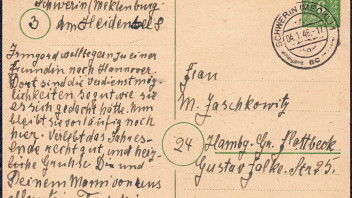 Schwerin/Mecklenburg
3 am Heidenbe
Irmgard wollte gen zu einer
Freundin nach Hannover
Dort sind die Verdienstmög-
lichkeiten so gut wie sie
es sich gedacht hätte. Nun
bleibt sie vorläufig noch
hier. Verlebt das Jahres-
ende recht gut, und herz-
liche Grüsse Dir und
Deinem Mann von uns
SCHWERIN (MECKL)
04.1.46
Frau
M. Jaschkowitz
24 Hambg. Gr. Flottbeck
Gustav Falke. Str 25.